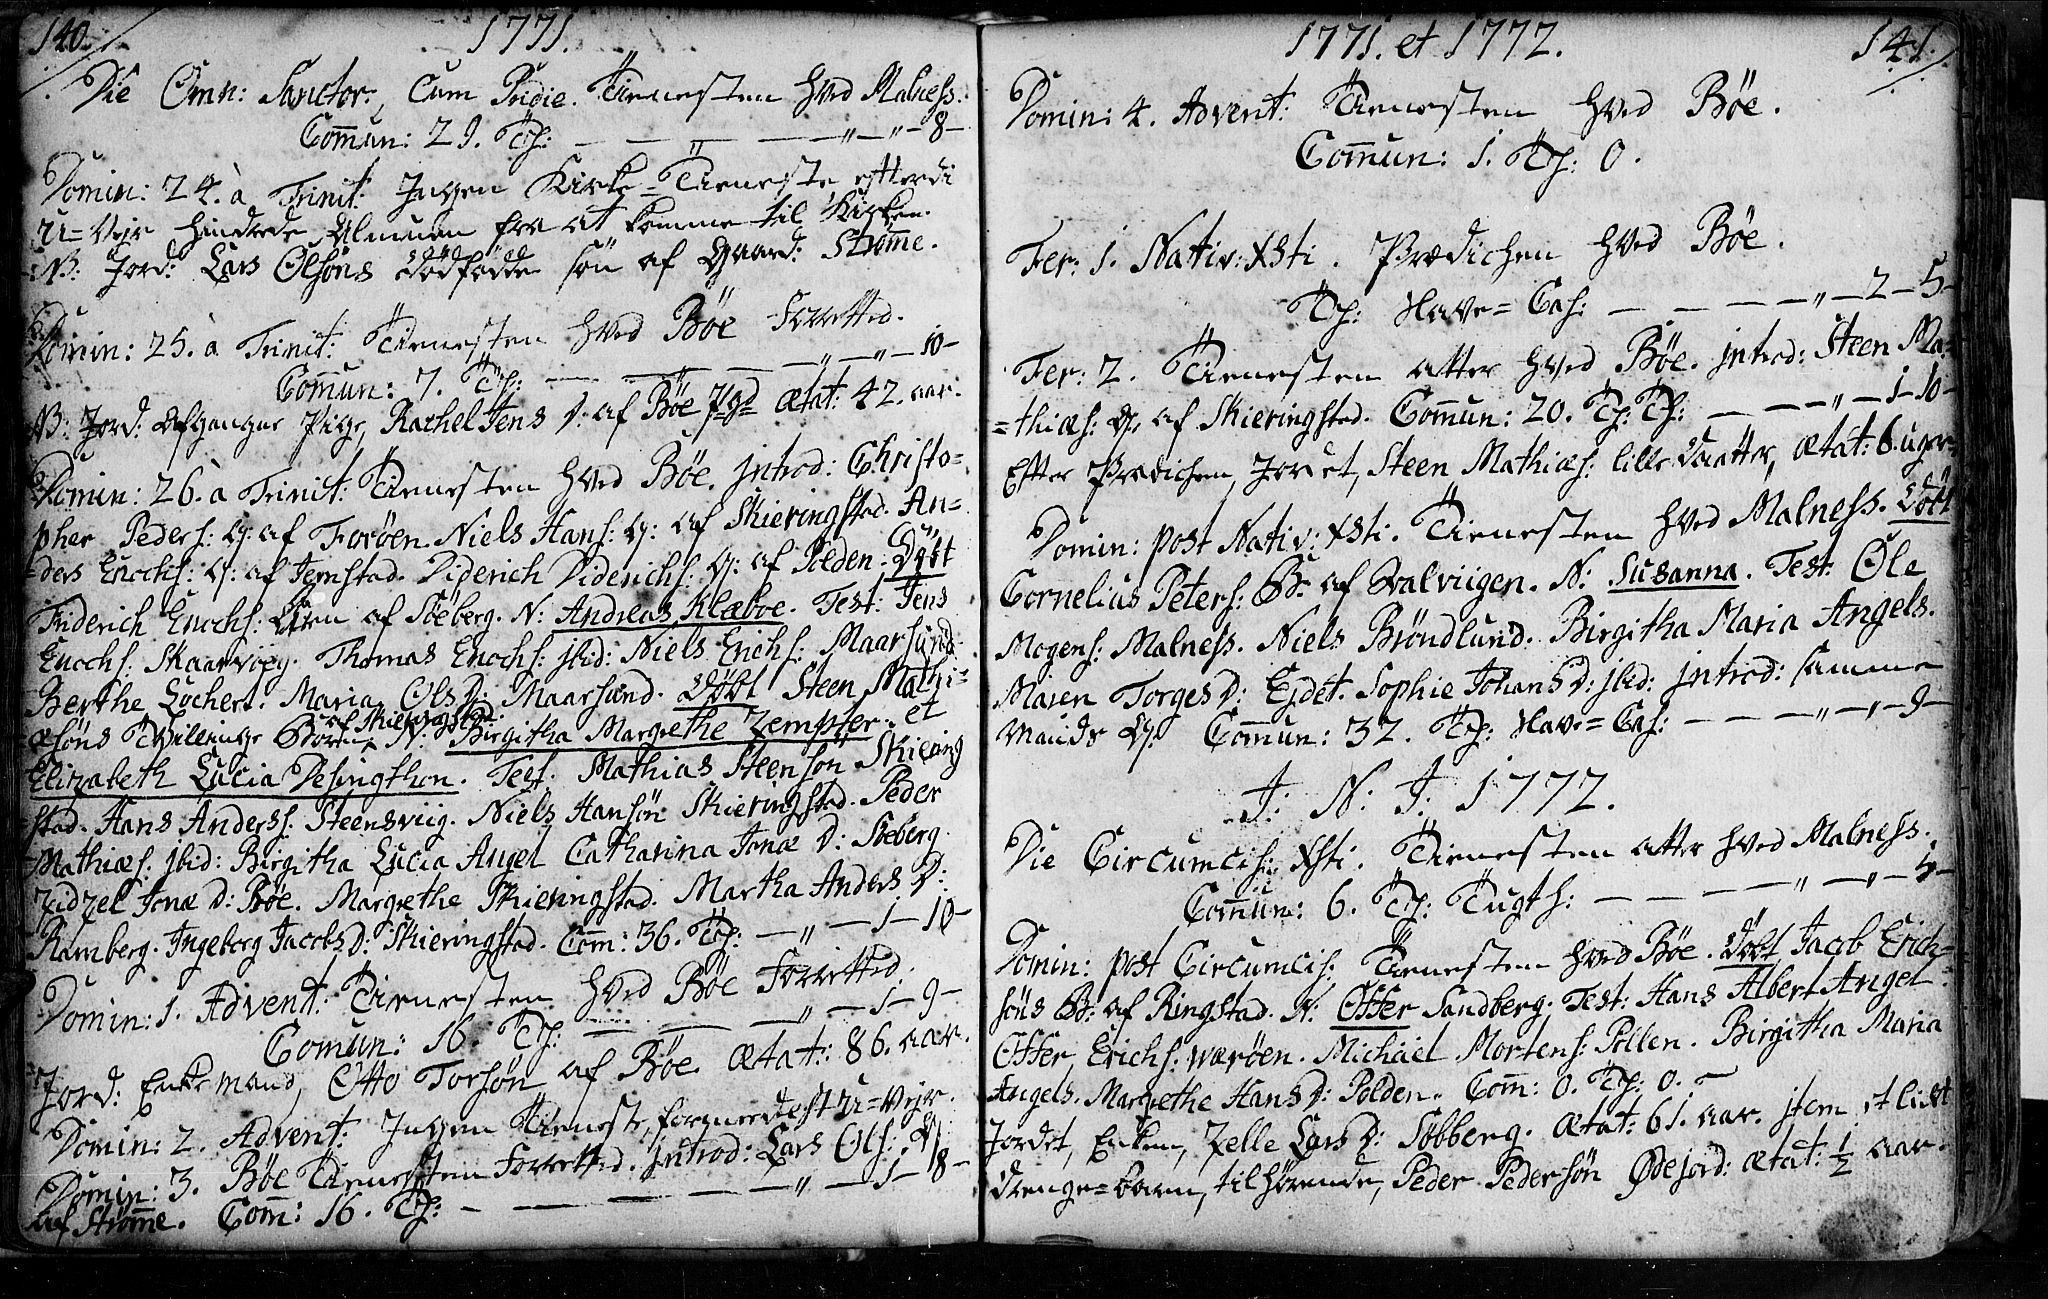 140.
1771.
Die Omn: Sanctor:, Cum Pridie. Tienesten hved Malness.
Commun: 29. Tf: — — „ — — — „ — „ — 8 —
Domin: 24. à Trinit: Ingen Kirke-Tieneste, efterdi
U-Vejr hindrede Almuen fra at komme til Kirken.
NB: Jord: Lars Olsöns dödfödde sön af Gaard: Strømme.
Domin: 25. à Trinit: Tienesten hved Böe Forretted.
Commun: 7. Tf: — — — — „ — „ — 10 —
NB: Jord: Pige, Rachel Jens D: af Böe ætat: 42. aar.
Domin: 26. à Trinit: Tienesten hved Böe. Introd: Christo=
pher Peders: Q: af Foröen. Niels Hans: Q: af Skieringstad. An=
=ders Enochs: Q: af Jemstad. Diderich Diderichs: Q: af Polden. Döbt
Friderich Enochs: Barn af Söeberg. N: Andreas Klæboe. Test: Jens
Enochs: Skaarviig. Thomas Enochs: ibid: Niels Erichs: Maarsund.
Berthe Lochert. Maria Ols D: Maarsund. Döbt Steen Mathi=
af Skieringstad.
æsöns Tvillinge Börn, N: Birgitha Margrethe Zempler. et
Elizabeth Lucia Desingthon. Test. Mathias Steensön Skiering
stad. Hans Anders: Steensviig. Niels Hansön Skieringstad. Peder
Mathiæs: ibid: Birgitha Lucia Angel Catharina Jonæ D: Söeberg.
Zidzel Jonæ D: Böe. Margrethe Skieringstad. Martha Anders D:
Ramberg. Ingeborg Jacobs D: Skieringstad. Com: 36. Tf: — „ — 1 — 10 —
Domin: 1. Advent: Tienesten hved Böe Forretted.
Comun: 16. Tf: — — — „ — 1 — 9 —
Jord: Enke mand, Otto Torsön af Böe ætat: 86. aar.
Domin: 2. Advent: Ingen Tieneste, formedelst U=Vejr.
Domin: 3. Böe Tienesten Forretted. Introd: Lars Ols: Q:
af Strømme. Com: 16. Tf: — — — — „ — 1 — 8 —
1771. et 1772.
141.
Domin: 4. Advent: Tienesten hved Böe.
Commun: 1. Tf: 0.
Fer: 1. Nativ: Xsti. Prædichen hved Böe.
Tf: Have= Cas: — — — — „ — 2 — 5 —
Fer: 2. Tienesten atter hved Böe. Introd: Steen Ma=
=thiæs: Q: af Skieringstad. Commun: 20. Tf: Tf: — — — „ — 1 — 10 —
Efter Prædichen, Jordet, Steen Mathiæs: lille Daatter, ætat: 6. uger.
Domin: post Nativ: Xsti. Tienesten hved Malness. Döbt
Cornelius Peters: B: af Svalviigen. N: Susanna. Test: Ole
Mogens: Malness. Niels Bröndlund. Birgitha Maria Angels.
Maren Torges D: Ejdet. Sophie Johans D: ibid: Introd: samme
Mands Q: Commun: 32. Tf: Have= Cas: — — — — „ — „ — 9 —
I: N: J: 1772.
Die Circumcis: Xsti. Tienesten atter hved Malness.
Commun: 6. Tf: Tugth: — — — — „ — „ — 4 —
Domin: post Circumcis: Tienesten hved Böe. Döbt, Jacob Erich=
söns B: af Ringstad. N: Offer Sandberg. Test: Hans Albert Angel
Offer Erichs: Wæröen. Michäel Mortens: Pollen. Birgitha Maria
Angels. Margrethe Hans D: Polden. Com: 0. Tf: 0. —
Jordet, Enken, Zelle Lars D: Söbberg. ætat: 61. aar. item et lidet
drenge=barn, tilhörende, Peder Pedersön Ödejord: ætat: ½ aar.